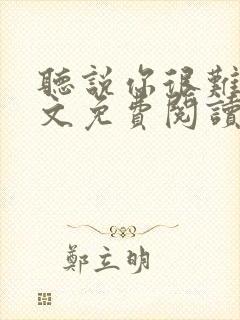 聽說你很難
文免費閱讀
鄭立明